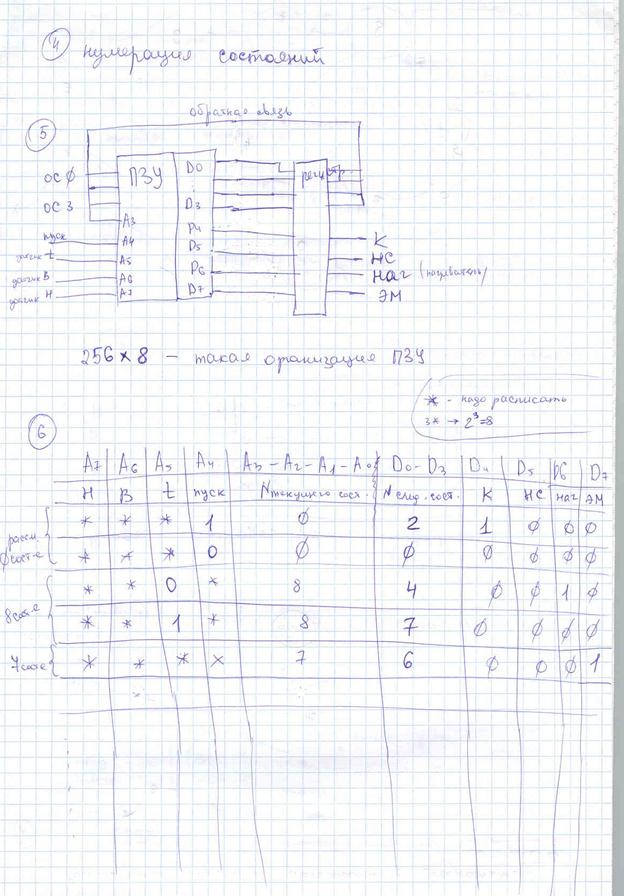 4 нумерация состояний
обратная связь
5
ОС ∅ ПЗУ D0 регистр.
ОС 3 D3
A3
пуск A4 D4 К
датчик t A5 D5 НС
датчик В A6 D6 НАГ (нагреватель)
датчик Н A7 D7 ЭМ
256 × 8 – такая организация ПЗУ
* - надо расписать
3* → 2³=8
6
A7 A6 A5 A4 A3 – A2 – A1 – A0 D0 – D3 D4 D5 D6 D7
Н В t пуск N текущего сост. N след. сост. К НС НАГ ЭМ
рассм. * * * 1 ∅ 2 1 ∅ ∅ ∅
∅ сост-е * * * 0 ∅ ∅ ∅ ∅ ∅ ∅
* * 0 * 8 4 ∅ ∅ 1 ∅
8 сост-е * * 1 * 8 7 ∅ ∅ ∅ ∅
7 сост-е * * * × 7 6 ∅ ∅ ∅ 1